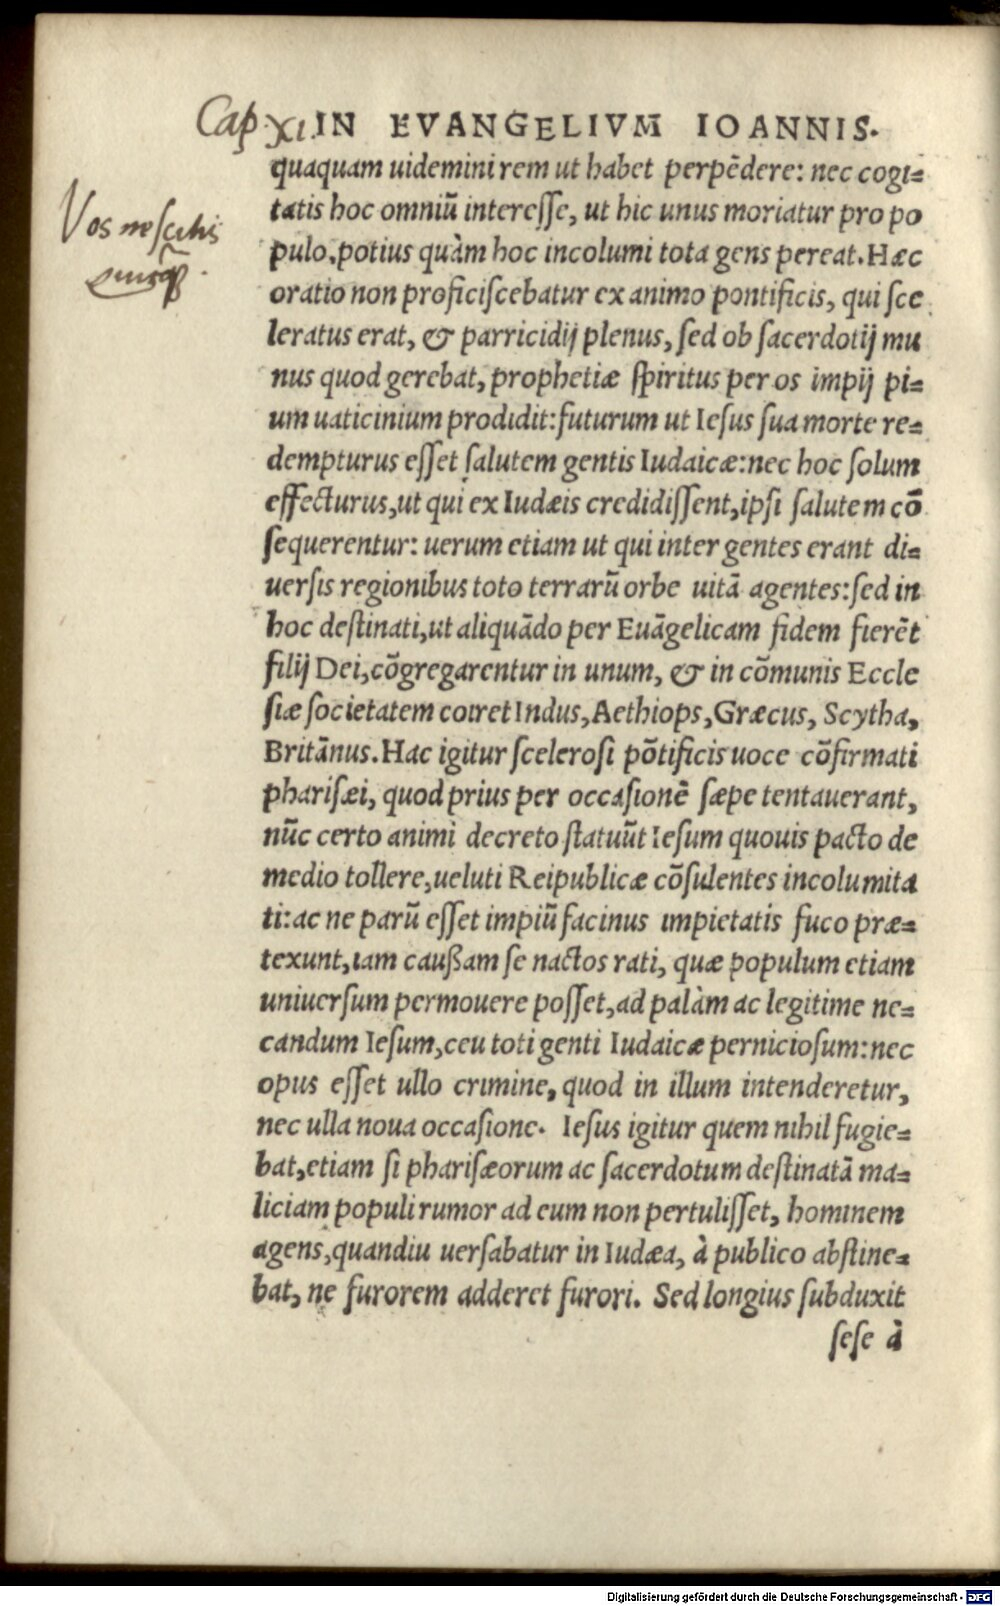 Cap XI. IN EVANGELIVM IOANNIS.
quaquam uidemini rem ut habet perpēdere: nec cogi=
Vos nescitis
tatis hoc omniū interesse, ut hic unus moriatur pro po
pulo, potius quàm hoc incolumi tota gens pereat. Hæc
oratio non proficiscebatur ex animo pontificis, qui sce
leratus erat, & parricidij plenus, sed ob sacerdotij mu
nus quod gerebat, prophetiæ spiritus per os impij pi=
um uaticinium prodidit: futurum ut Iesus sua morte re=
dempturus esset salutem gentis Iudaicæ: nec hoc solum
effecturus, ut qui ex Iudæis credidissent, ipsi salutem cō
sequerentur: uerum etiam ut qui inter gentes erant di=
uersis regionibus toto terrarū orbe uitā agentes: sed in
hoc destinati, ut aliquādo per Euāgelicam fidem fierēt
filij Dei, cōgregarentur in unum, & in cōmunis Eccle
siæ societatem coiret Indus, Aethiops, Græcus, Scytha,
Britānus. Hac igitur scelerosi pōtificis uoce cōfirmati
pharisæi, quod prius per occasionē sæpe tentauerant,
nūc certo animi decreto statuūt Iesum quouis pacto de
medio tollere, ueluti Reipublicæ cōsulentes incolumita
ti: ac ne parū esset impiū facinus impietatis fuco præ=
texunt, iam caußam se nactos rati, quæ populum etiam
uniuersum permouere posset, ad palàm ac legitime ne=
candum Iesum, ceu toti genti Iudaicæ perniciosum: nec
opus esset ullo crimine, quod in illum intenderetur,
nec ulla noua occasione. Iesus igitur quem nihil fugie=
bat, etiam si pharisæorum ac sacerdotum destinatā ma=
liciam populi rumor ad eum non pertulisset, hominem
agens, quandiu uersabatur in Iudæa, à publico abstine=
bat, ne furorem adderet furori. Sed longius subduxit
sese à
Digitalisierung gefördert durch die Deutsche Forschungsgemeinschaft - DFG